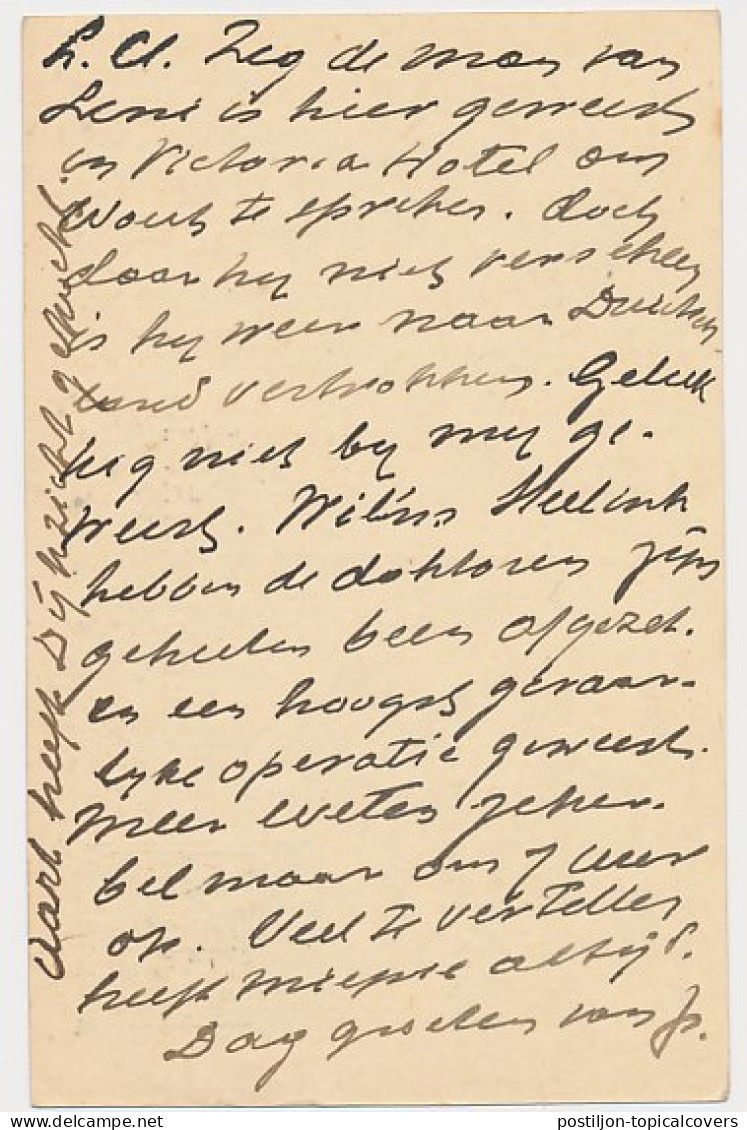 L. Cl. Zeg de man van
Leni is hier geweest
in Victoria Hotel om
Wout te spreken. doch
daar hij niet verscheen
is hij weer naar Duitsch
land vertrokken. Geluk
kig niet bij mij ge-
weest. Wil'ms Heelink
hebben de doktoren zijn
geheelen been afgezet.
en een hoogst gevaar-
lijke operatie geweest.
Meer weten
bel maar om 7 uur
op. Veel te vertellen
heeft Miepie altijd.
Dag groeten van Js.
Aart heeft Dijkzicht gekocht.
www.delcampe.net
postiljon-topicalcovers